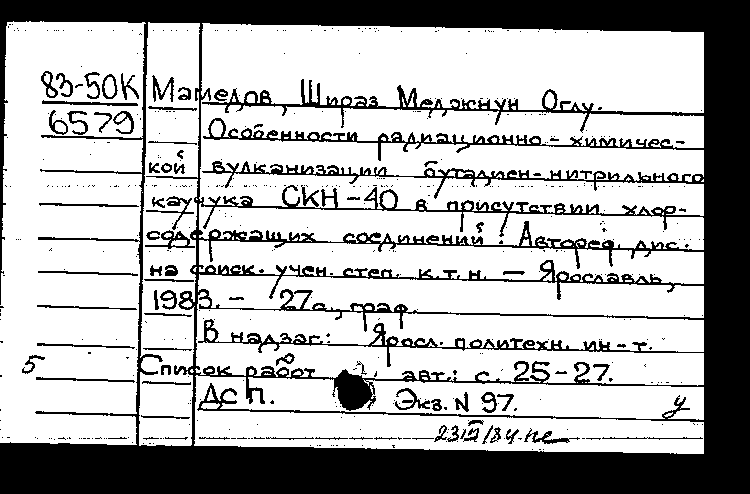 83-50К Мамедов, Шираз Меджнун Оглу.
6579 Особенности радиационно-химичес-
кой вулканизации бутадиен-нитрильного
каучука СКН-40 в присутствии хлор-
содержащих соединений: Автореф. дис.
на соиск. учен. степ. к.т.н. — Ярославль,
1983. - 27с., граф.
В надзаг.: Яросл. политехн. ин-т.
5 Список работ авт.: с. 25-27.
ДСП. Экз. N 97. У